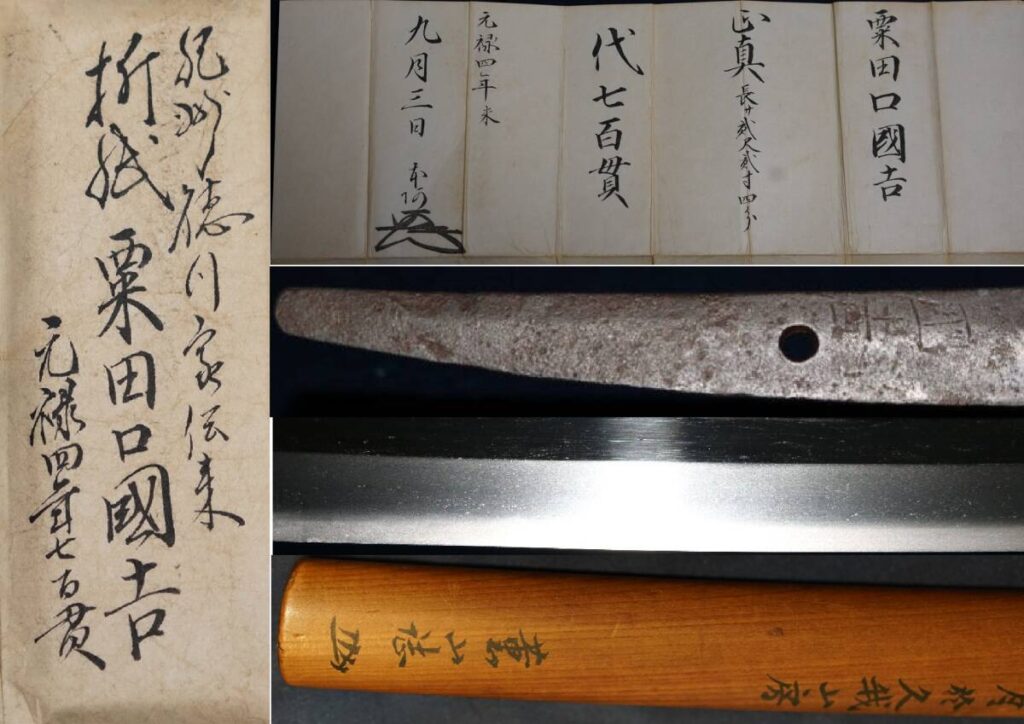 紀州徳川家伝来
折紙 粟田口國吉
元禄四年七百貫
粟田口國吉
正真 長サ貳尺貳寸四分
代七百貫
元禄四年未
九月三日 本阿
月於久我山房
薫山誌